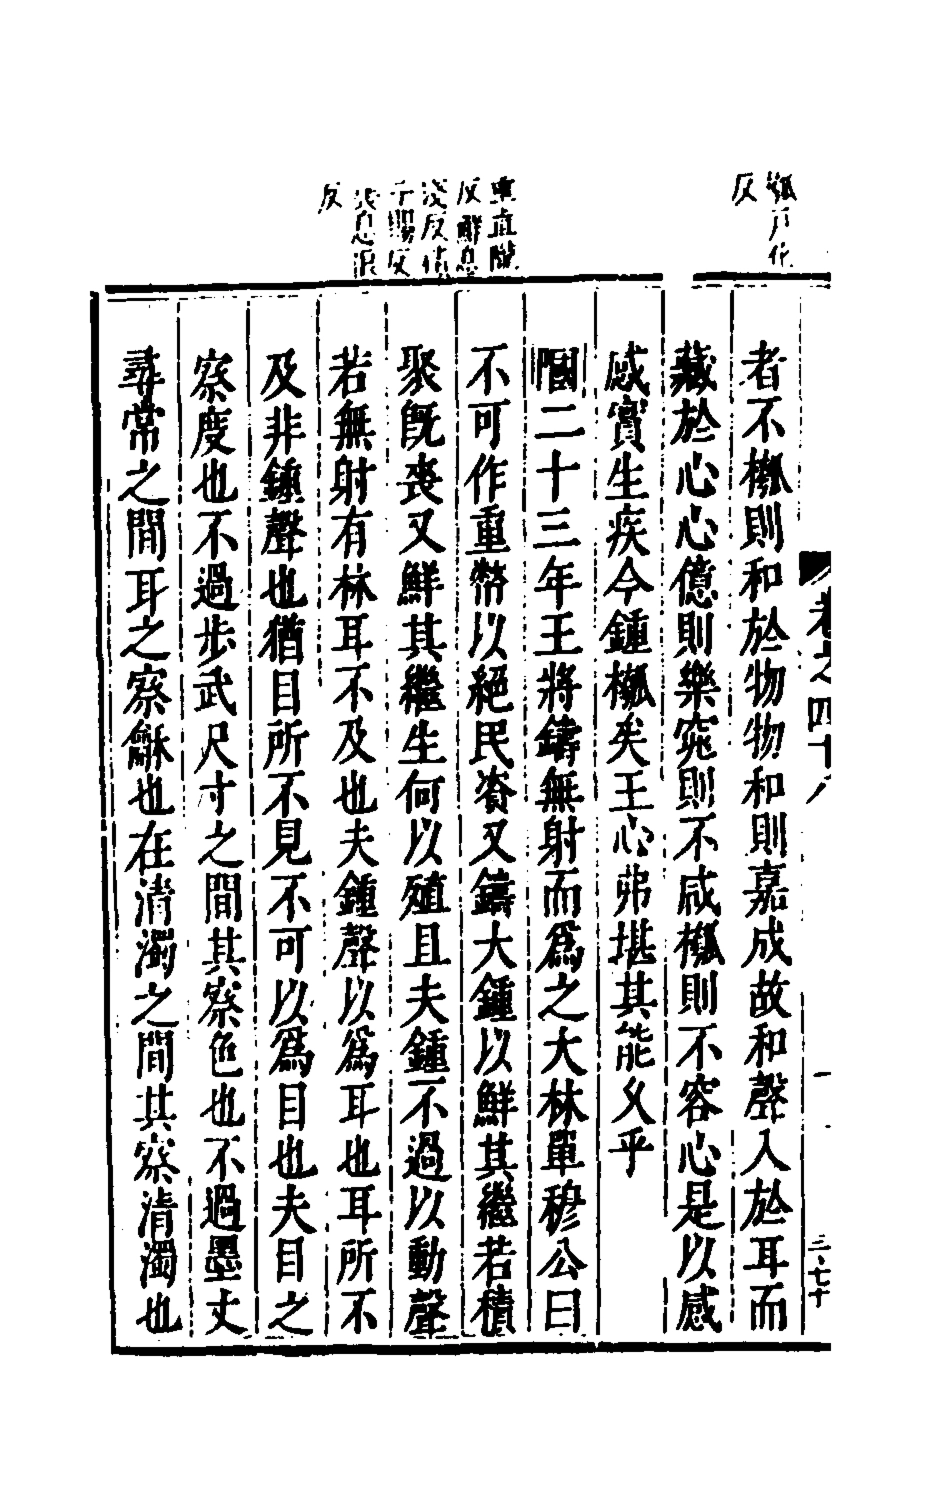 瓡戶化
反
重直隴
反鮮息
淺反積
子賜反
喪息浪
反
卷之四十八
三七十
者不瓡則和於物物和則嘉成故和聲入於耳而
藏於心心億則樂窕則不咸槬則不容心是以感
感實生疾今鍾槬矣王心弗堪其能乂乎
國二十三年王將鑄無射而爲之大林單穆公曰
不可作重幣以絕民資又鑄大鍾以鮮其繼若積
聚旣喪又鮮其繼生何以殖且夫鍾不過以動聲
若無射有林耳不及也夫鍾聲以爲耳也耳所不
及非鍾聲也猶目所不見不可以爲目也夫目之
察度也不過步武尺寸之間其察色也不過墨丈
尋常之間耳之察龢也在清濁之間其察清濁也